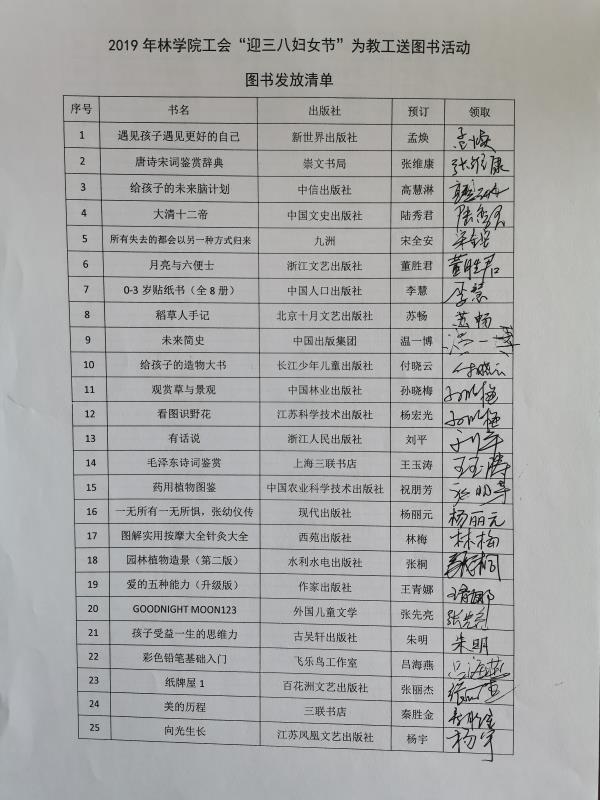 2019 年林学院工会“迎三八妇女节”为教工送图书活动
图书发放清单
序号 书名 出版社 预订 领取
1 遇见孩子遇见更好的自己 新世界出版社 孟焕 孟焕
2 唐诗宋词鉴赏辞典 崇文书局 张维康 张维康
3 给孩子的未来脑计划 中信出版社 高慧淋
4 大清十二帝 中国文史出版社 陆秀君 陆秀君
5 所有失去的都会以另一种方式归来 九洲 宋全安 宋全安
6 月亮与六便士 浙江文艺出版社 董胜君 董胜君
7 0-3 岁贴纸书（全 8 册） 中国人口出版社 李慧 李慧
8 稻草人手记 北京十月文艺出版社 苏畅 苏畅
9 未来简史 中国出版集团 温一博 温一博
10 给孩子的造物大书 长江少年儿童出版社 付晓云 付晓云
11 观赏草与景观 中国林业出版社 孙晓梅 孙晓梅
12 看图识野花 江苏科学技术出版社 杨宏光 孙晓梅
13 有话说 浙江人民出版社 刘平 刘平
14 毛泽东诗词鉴赏 上海三联书店 王玉涛 王玉涛
15 药用植物图鉴 中国农业科学技术出版社 祝朋芳 祝朋芳
16 一无所有一无所惧，张幼仪传 现代出版社 杨丽元 杨丽元
17 图解实用按摩大全针灸大全 西苑出版社 林梅 林梅
18 园林植物造景（第二版） 水利水电出版社 张桐 张桐
19 爱的五种能力（升级版） 作家出版社 王青娜 王青娜
20 GOODNIGHT MOON123 外国儿童文学 张先亮 张先亮
21 孩子受益一生的思维力 古吴轩出版社 朱明 朱明
22 彩色铅笔基础入门 飞乐鸟工作室 吕海燕 吕海燕
23 纸牌屋 1 百花洲文艺出版社 张丽杰
24 美的历程 三联书店 秦胜金 秦胜金
25 向光生长 江苏凤凰文艺出版社 杨宇 杨宇